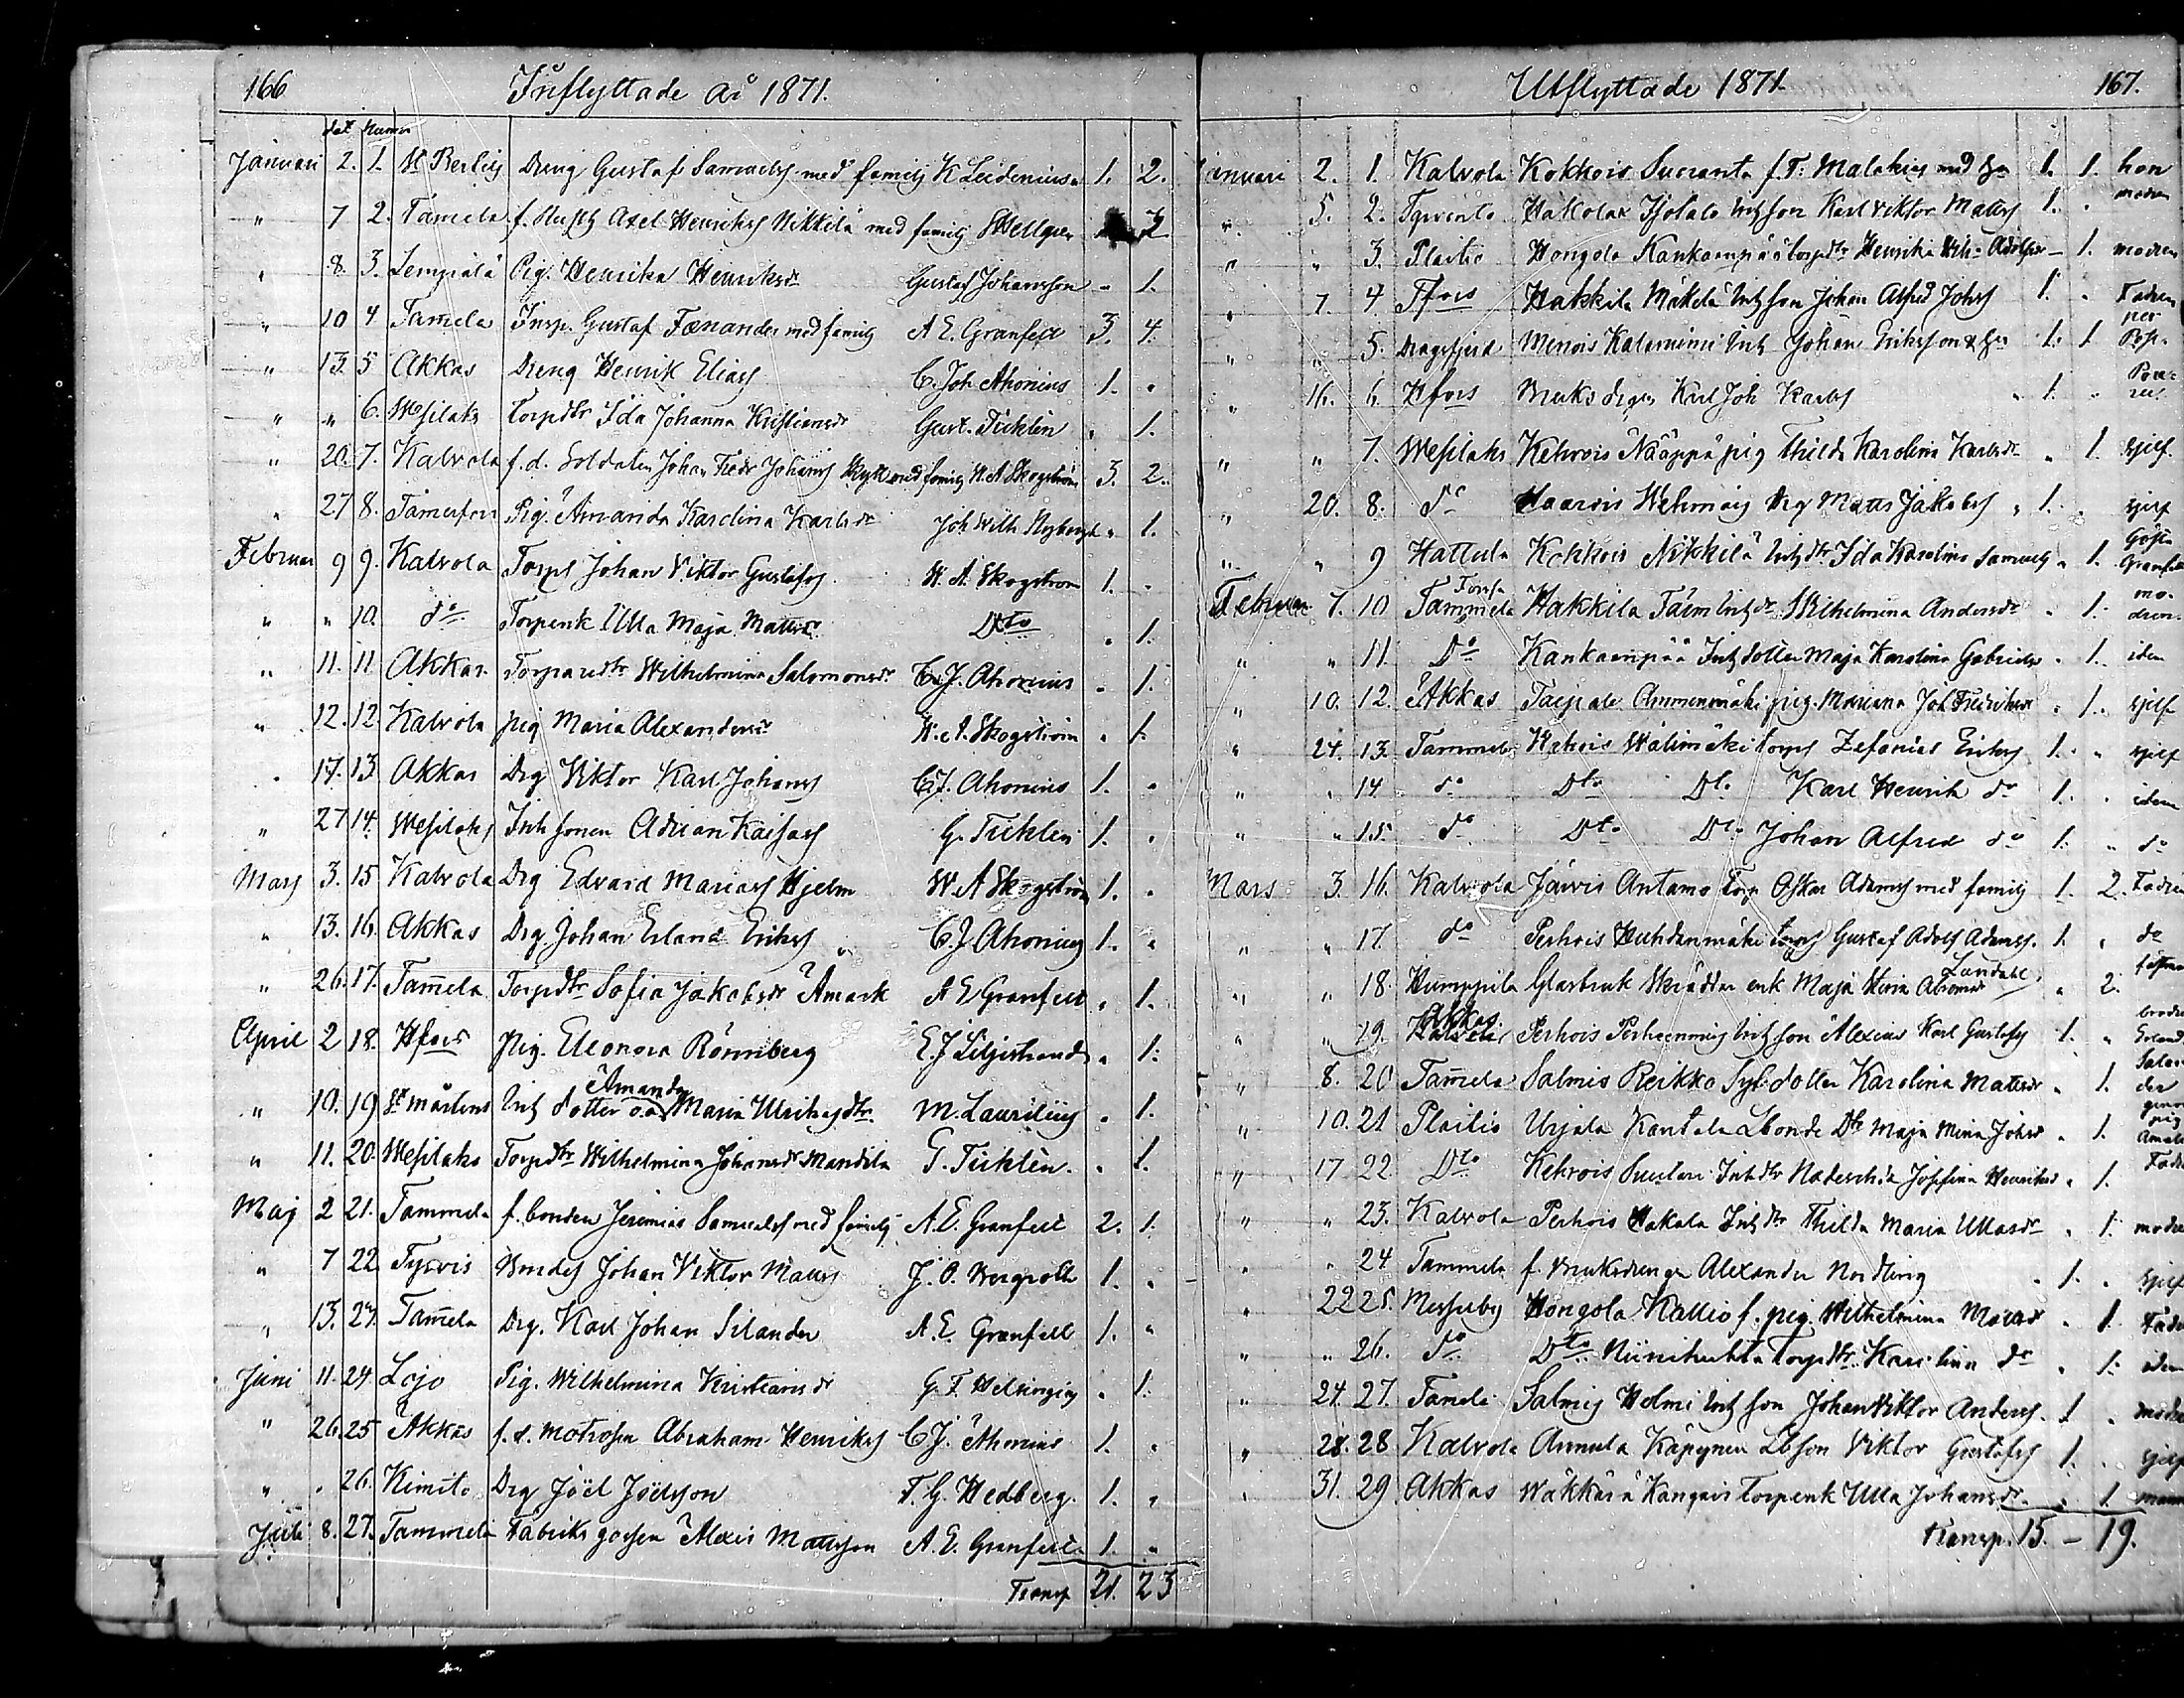 166 Inflyttade år 1871.
dat Numer
Januari 2. 1. St Bertils Dreng Gustaf Samuels med familj K Leidenius 1. 2.
" 7 2. Tamela f. Axel Henriks Nikkilä med familj Hellgren 2
" 8. 3. Lempiälä Pig. Henrika Henriksdr Gustaf Johansson - 1.
" 10 4 Tamela Insp. Gustaf Fænander med familj A E. Granfelt 3. 4.
" 13. 5 Akkas Dreng Henrik Elias C. Joh Ahonius 1. "
" " 6. Wesilaks Torpdtr Ida Johanna Kristiansdr Gust. Ticklén " 1.
" 20. 7. Kalvola f.d. Soldaten Johan Fredr Johans med familj W. A Skogström 3. 2.
" 27 8. Tamerfors Pig. Amanda Karolina Karlsdr Joh Wilh Nyberg " 1.
Februar 9 9. Kalvola Torp Johan Viktor Gustafs W. A. Skogström 1. "
" " 10. do Torpenk Ulla Maja Mattsdr Dto " 1.
" 11. 11 Akkas. Torparedtr Wilhelmina Salomonsdr C. J. Ahonius " 1.
" 12. 12. Kalvola pig Maria Alexandersdr W. A. Skogström " 1.
" 17. 13 Akkas Drg Viktor Karl Johans C. J. Ahonius 1. "
" 27 14. Wesilaks Inh sonen Adrian Kaisas G. Ticklén 1. "
Mars 3. 15 Kalvola Drg Edvard Marias Hjelm W. A Skogström 1. "
" 13. 16. Akkas Drg. Johan Erland Eriks C. J Ahonius 1. "
" 26. 17. Tamela Torpdtr Sofia Jakobsdr Åmark A E Granfelt " 1.
April 2 18. Hfors Pig. Eleonora Rönnberg E. J Liljestrand " 1.
Amanda
" 10. 19 St mårtens Inh dotter o.ä Maria Ulrikasdtr M. Laurilius " 1.
" 11. 20. Wesilaks Torpdtr Wilhelmina Johansdr Mandila G. Ticklén. " 1.
Maj 2 21. Tammela f. bonden Jeremias Samuels med familj A. E. Granfelt 2. 1.
" 7 22. Tyrvis Johan Viktor Matts J. O. Bergroth 1. "
" 13. 23. Tamela Drg. Karl Johan Silander A. E. Granfelt 1. "
Juni 11. 24. Lojo Pig. Wilhelmina Kristiansdr G. F. Helsingius " 1.
" 26. 25 Akkas f. d. Matrosen Abraham Henriks C J. Ahonius 1. "
" " 26. Kimito Drg Joel Joelsson F. G. Hedberg. 1. "
Juli 8. 27. Tammela Fabriks gossen Alexis Mattsson A. E. Granfelt 1. "
Transp 21. 23
Utflyttade 1871. 167.
Januari 2. 1. Kalvola Kokkois Suoranta f. T. Malakias med hu 1. 1. hon
" 5. 2. Hakolax Isotalo Inh son Karl Viktor Matts 1. " modren
" " 3. Plaitis Hongola Kankaanpää torpdtr Henrika - 1. modren
" 7. 4. Tfors Hakkila Mäkelä Inh son Johan Alfred Johs 1. " Fadren
" " 5. Dragsfjerd Menois Kalaniemi Inh Johan Eriksson & hu 1. 1 per Post.
" 16. 6. Hfors Bruks drgn Karl Joh Karls 1. "
" " 7. Wesilaks Kehrois Nääppä pig Thilda Karolina Karlsdr " 1. sjelf.
" 20. 8. do Haarois Wehmais drg Matts Jakobs 1. " sjelf
" " 9 Hattula Kokkois Nikkilä Inh dtr. Ida Karolina Samuels " 1. Gösta Granfelt
Forssa
Februar 7. 10 Tammela Hakkila Inh dr Wilhelmina Andersdr " 1. modren
" " 11. Do Kankaanpää Inh dotter Maja Karolina Gabriels " 1. idem
" 10. 12. Akkas Taipale Ammenmäki pig. Mariana Joh Fredriksdr " 1. sjelf
" 24. 13. Tammela Kehois Wälimäki torps Zefanias Eriks 1. " sjelf
" " 14 do Dto Dto Karl Henrik do 1. " idem
" " 15. do Dto Dto Johan Alfred do 1. " do
Mars 3. 16. Kalvola Järvis Antamo Torp Oskar Adams med familj 1. 2. Fadren
" " 17. do Perhois Huhdanmäki torps Gustaf Adolf Adams. 1. " do
Landahl
" " 18. Humppila Glasbruk Skräddar enk Maja Stina " 2.
Akkas
" " 19. Perhois Perheenmies Inh son Alexius Karl Gustafs 1. " Erland
" 8. 20 Tamela Salmis Reikko Syt. dotter Karolina Mattsdr " 1.
" 10. 21 Plaitis Urjala Kantala Lbonde Dtr Maja Mina Johsdr " 1. genom pig Amalia
" 17 22. Dto Kehrois Suutari Inh dtr Nadeschda Josefina Henriksdr " 1. Fadren
" " 23. Kalvola Perhois Hakala Inh dtr Thilda Maria Ullasdr " 1. modren
" " 24 Tammela f. Bruksdrengen Alexander Nordling 1. " sjelf
" 22 25. Messuby Hongola Kallio f. pig. Wilhelmina " 1. Fadren
" " 26. do Dto Niinihuhta torpdtr. Karolina do " 1. idem
" 24. 27. Tamela Salmis Holmi Inh son Johan Viktor Anders. 1 " modren
" 28. 28 Kalvola Annula Käpynen Lbson Viktor Gustafs 1. " sjelf
" 31. 29. Akkas Wäkkärä Kangais Torpenk Ulla Johansdr. " 1.
Transp. 15. - 19.